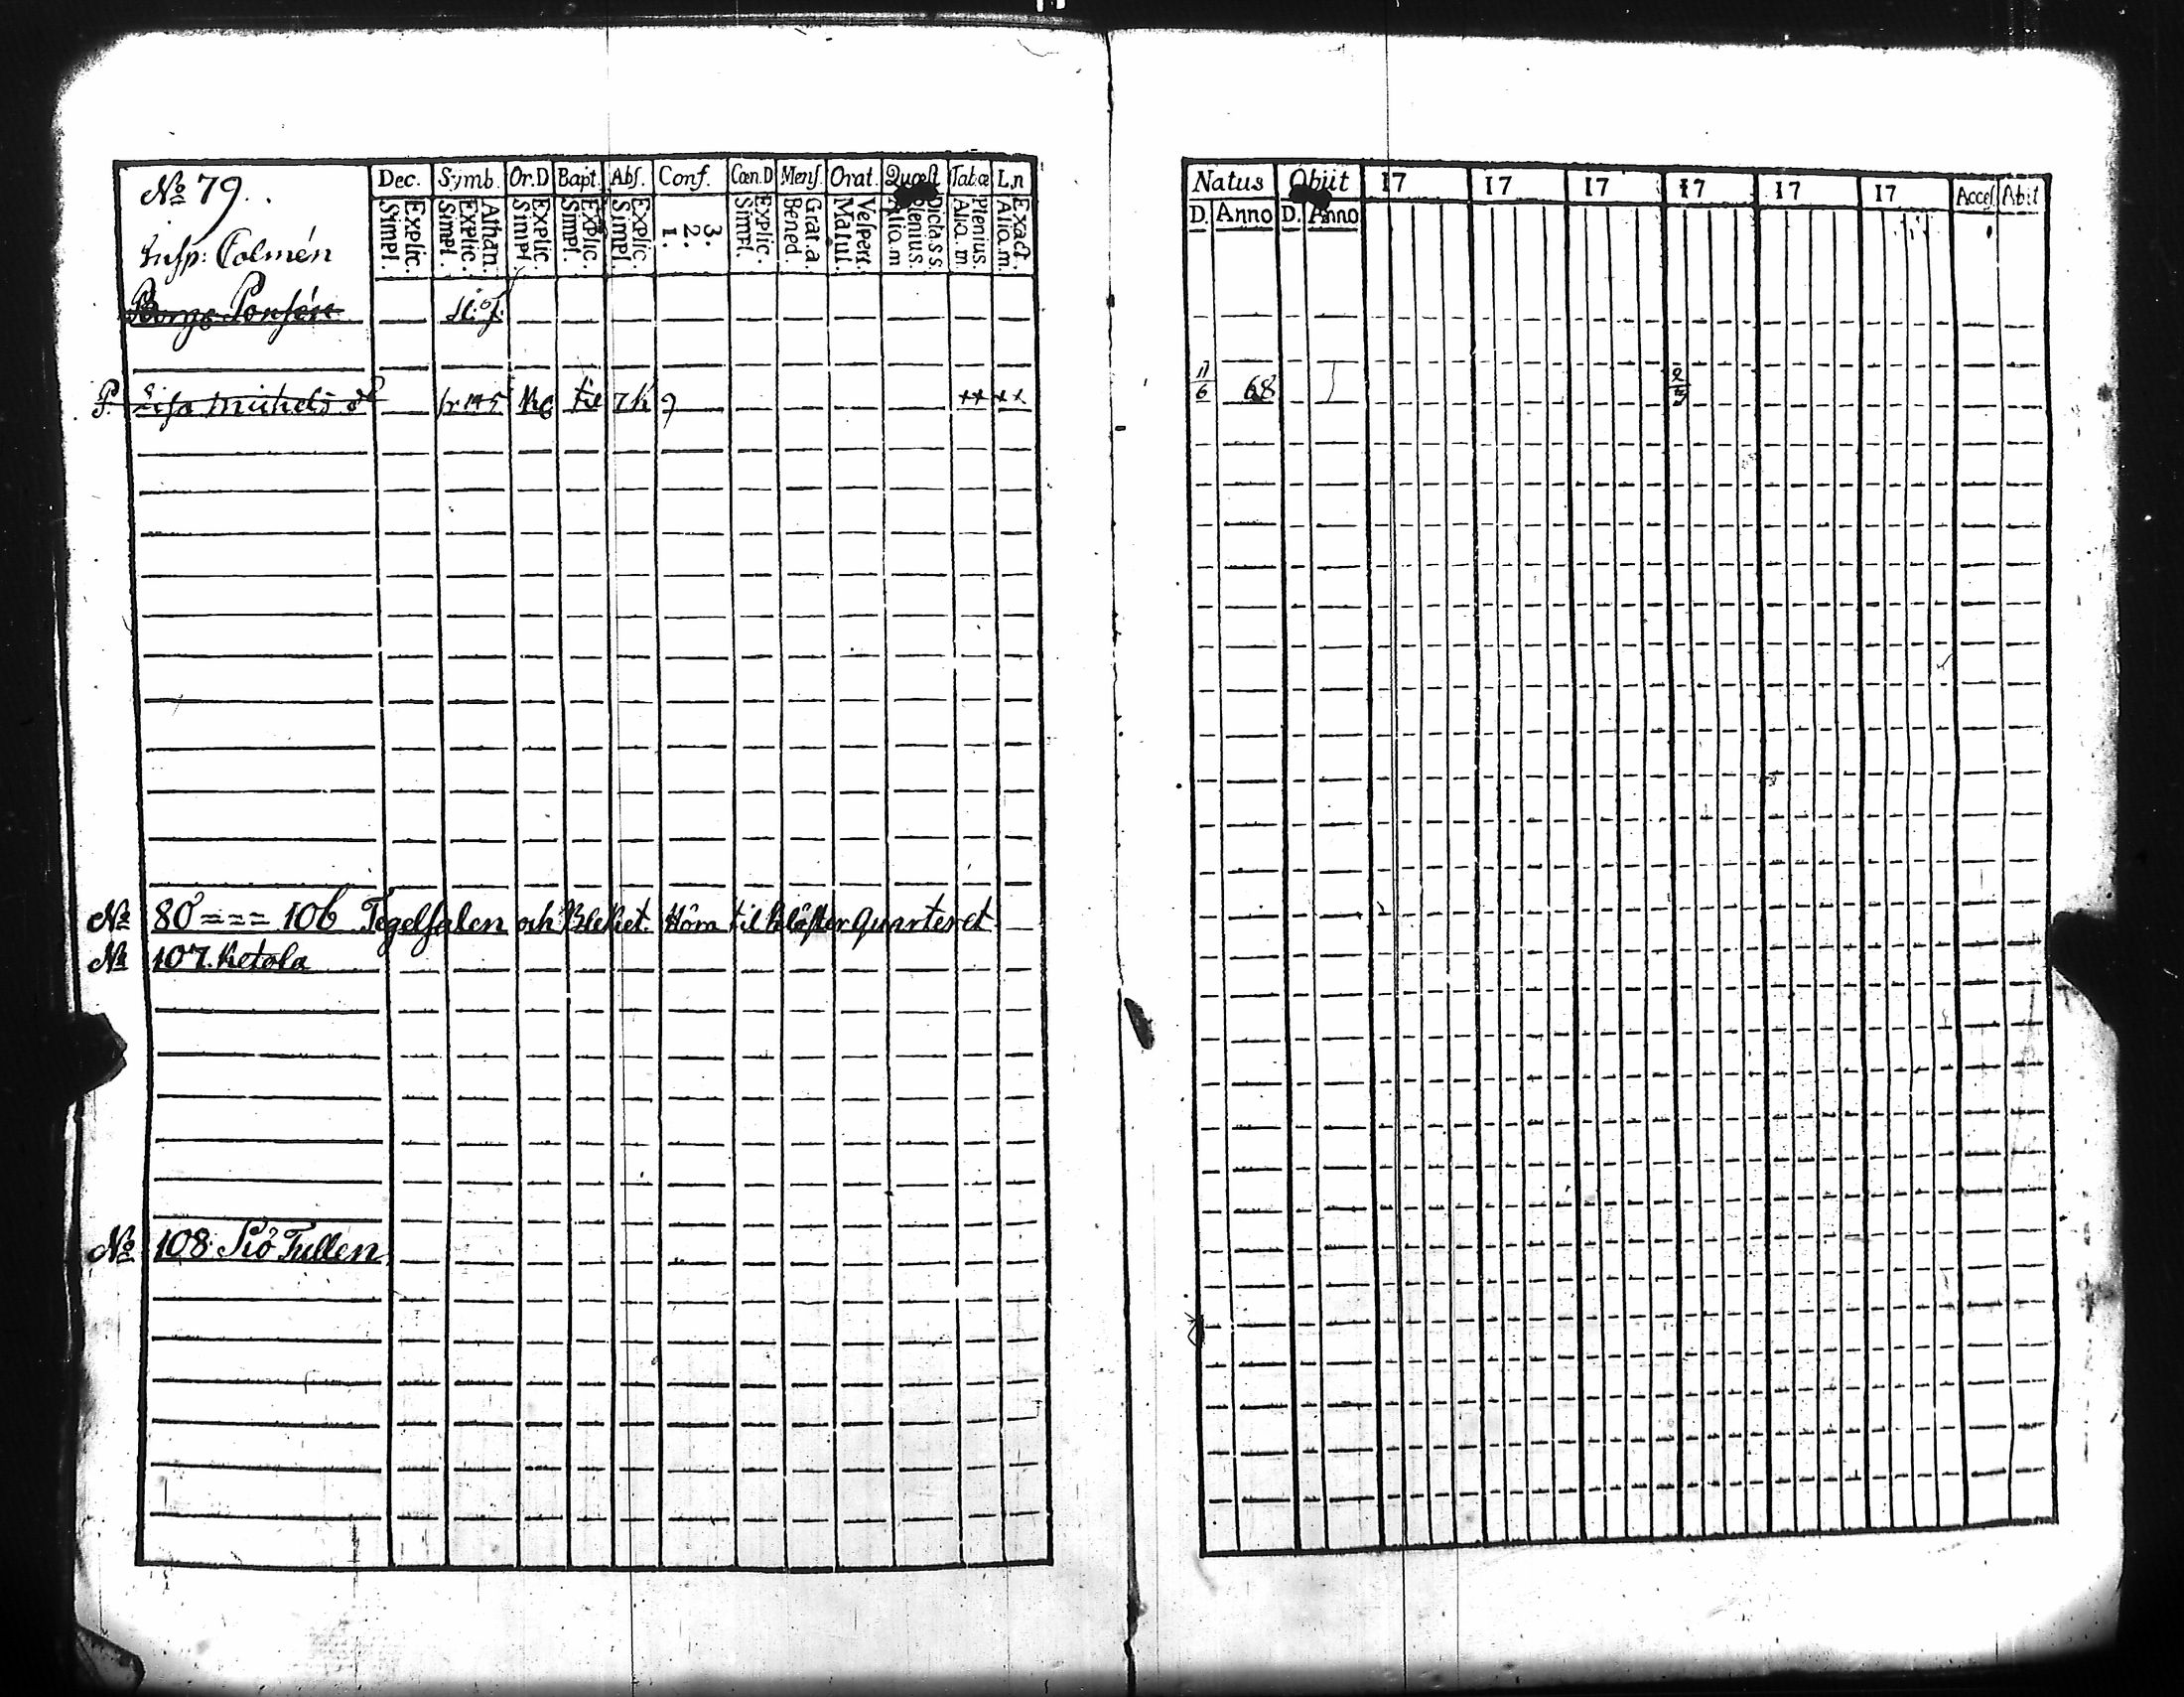 No 79. Dec. Symb. Or.D Bapt. Abs. Conf. Cœn.D Mens. Orat. Quæst Tabæ Ln
Explic. Simpl. Athan. Explic. Simpl. Explic. Simpl. Explic. Simpl. Explic. Simpl. 3. 2. 1. Explic. Simpl. Grat.a. Bened. Vespert. Matut. Dicta.s s. Plenius. Alia.m Plenius. Alia.m. Exact. Alia.m.
Insp: Colmén
P. Lisa Michels dr
No 80 === 106 Tegelsalen och Bleket. Höra til Klöster Quarteret
No 107. Ketola
No 108. Siö Tullen
Natus Obiit 17 17 17 17 17 17 Acces. Abit
D. Anno D. Anno
11/6 68 2/3